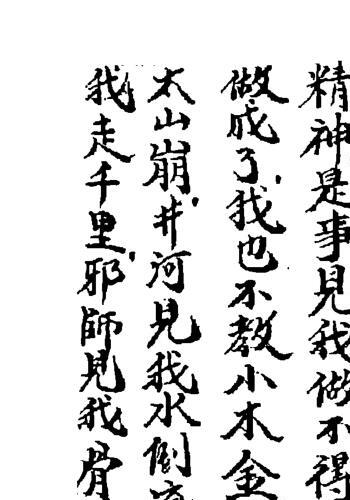 精神是事見我做不得
做成了我也不教小木金
太山崩井河見我水倒
我走千里邪師見我骨